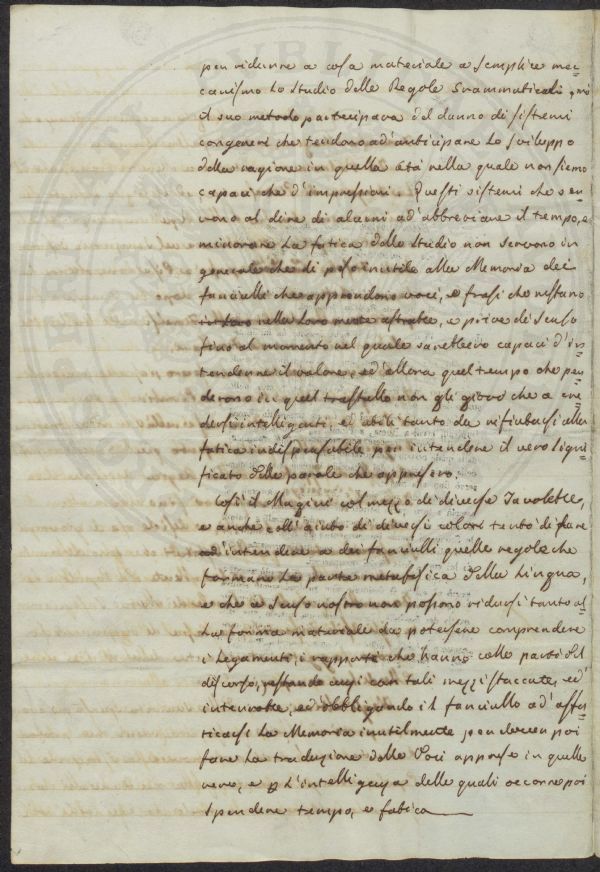 per ridurre a cosa materiale a semplice mec-
canismo lo studio delle Regole Grammaticali, ma
il suo metodo partecipava del danno di sistemi
congeneri che tendono ad'anticipare lo sviluppo
della ragione in quella età nella quale non siemo
capaci che d'impressioni. Questi sistemi che ser-
vono al dire di alcuni ad'abbreviare il tempo, e
minorare la fatica dello studio non servono in
generale che di peso inutile alla Memoria dei
fanciulli che apprendono voci, e frasi che restano
nella loro mente astratte, e prive di senso
fino al momento nel quale sarebbero capaci d'in-
tenderne il valore, ed'allora quel tempo che per-
derono in quel trastullo non gli giovò che a cre-
dersi intelligenti, ed abili tanto da rifiutarsi alla
fatica indispensabile per intendere il vero signi-
ficato delle parole che appresero.
Così il Mugini col mezzo di diverse Tavolette,
e anche coll'ajuto di diversi colori tentò di fare
ad'intendere a dei fanciulli quelle regole che
formano la parte metafisica della Lingua,
e che a senso nostro non possono ridursi tanto al-
la forma materiale da potersene comprendere
i legamenti, i rapporti che hanno colle parti del
discorso, restando cusì con tali mezzi staccate, ed'
interrotte, ed obbligando il fanciullo ad'affa-
ticarsi la Memoria inutilmente per dover poi
fare la traduzione delle Voci apprese in quelle
vere, e p l'intelligenza delle quali occorre poi
spendere tempo, e fatica